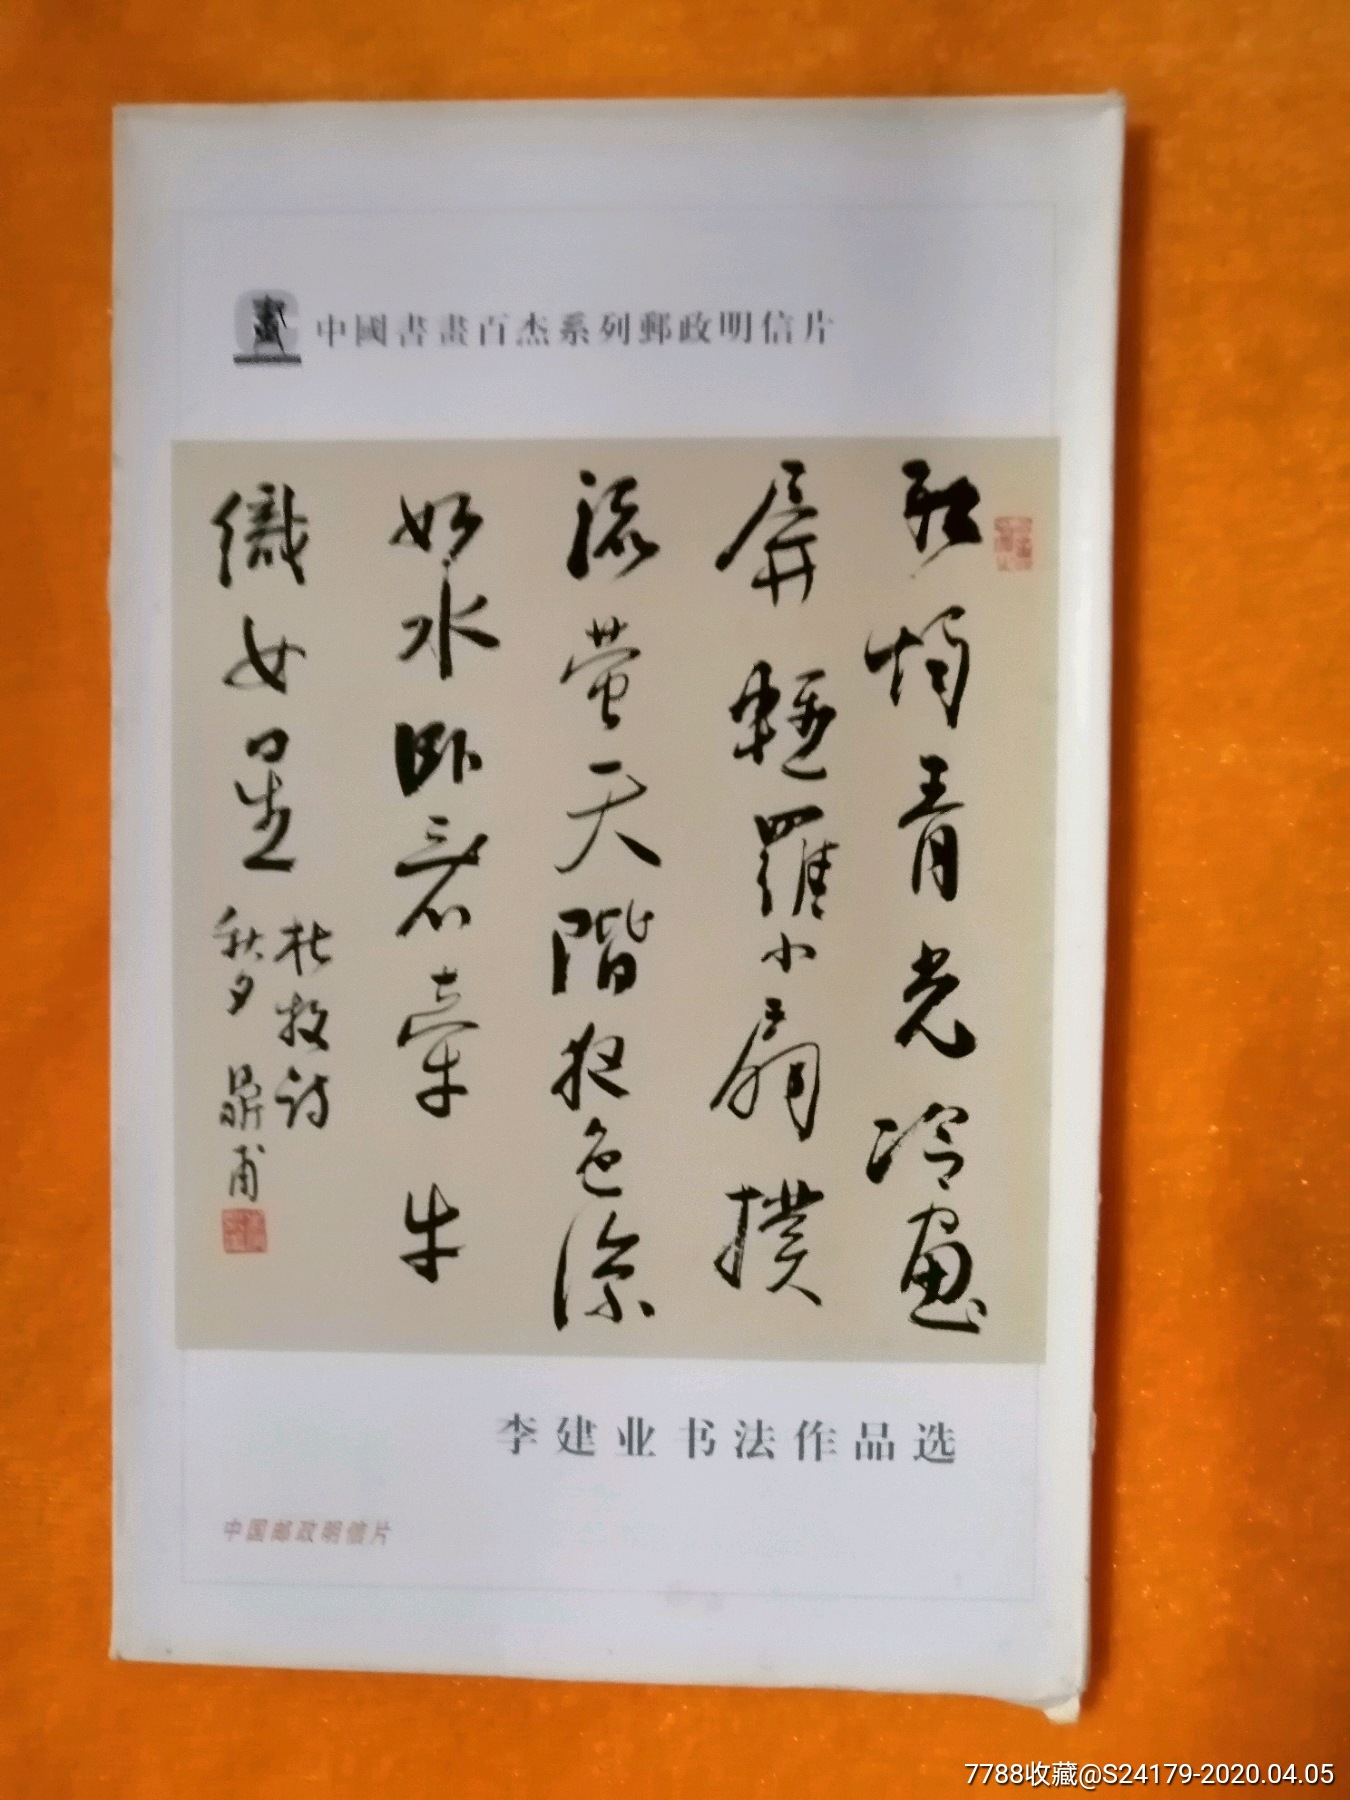 中國書畫百杰系列郵政明信片
燭青光冷畫
屏輕羅小扇撲
流螢天階夜色涼
如水卧看牽牛
織女星
杜牧詩
秋夕 鼎甫
李建业书法作品选
中国邮政明信片
7788收藏@S24179-2020.04.05